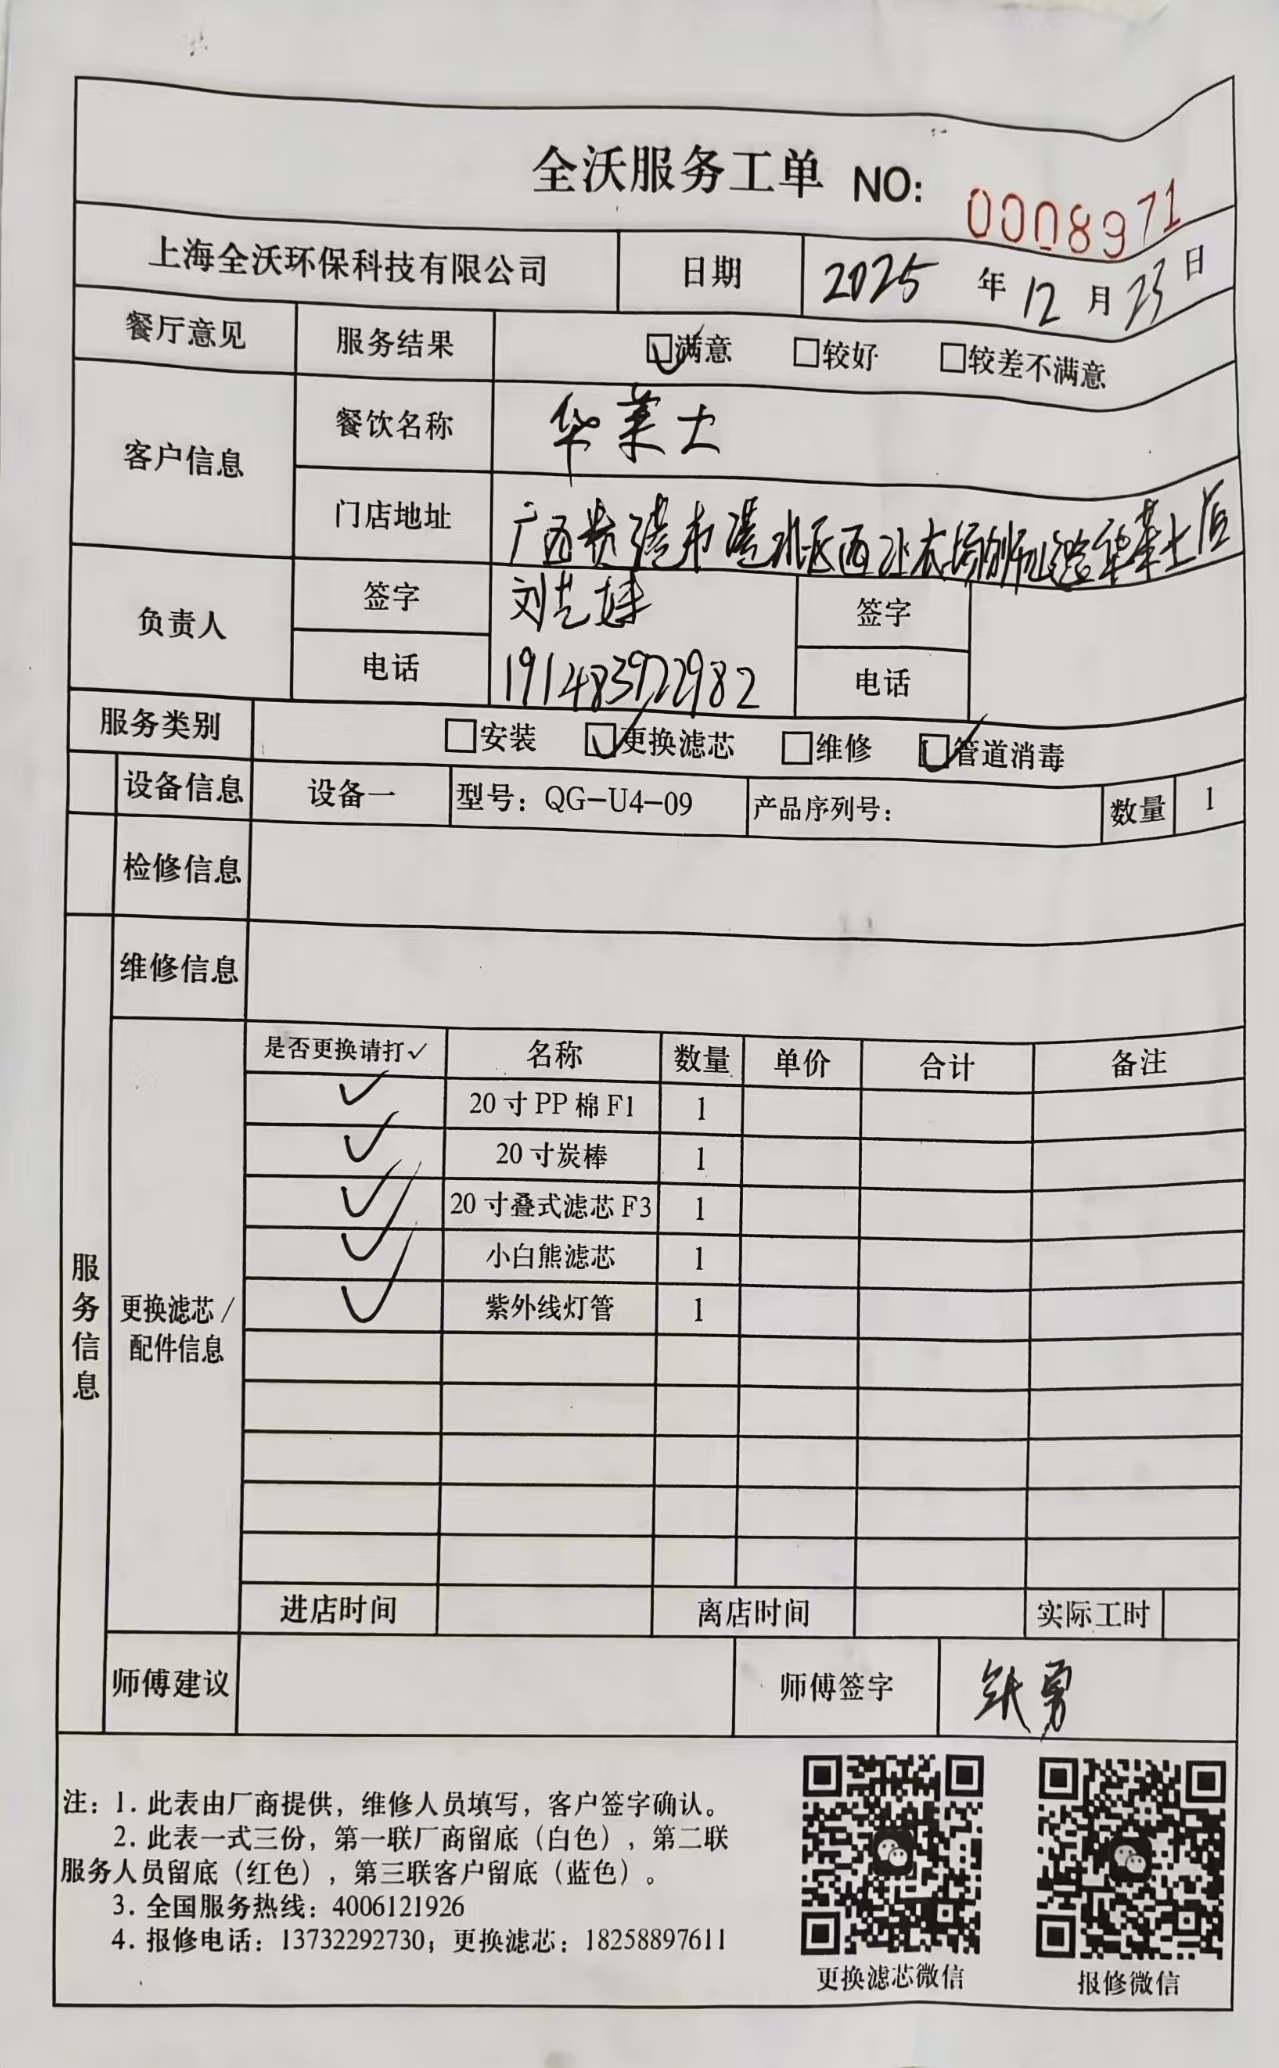 全沃服务工单 NO: 0008971
上海全沃环保科技有限公司 日期 2025 年 12 月 23 日
餐厅意见 服务结果 ☑满意 □较好 □较差不满意
客户信息 餐饮名称 华莱士
门店地址 广西贵港市港北区西江农场 华莱士店
负责人 签字 刘 妹 签字
电话 电话
服务类别 □安装 ☑更换滤芯 □维修 ☑管道消毒
设备信息 设备一 型号：QG-U4-09 产品序列号： 数量 1
检修信息
维修信息
服务信息
更换滤芯/
配件信息
是否更换请打✓ 名称 数量 单价 合计 备注
✓ 20寸PP棉F1 1
✓ 20寸炭棒 1
✓ 20寸叠式滤芯F3 1
✓ 小白熊滤芯 1
✓ 紫外线灯管 1
进店时间 离店时间 实际工时
师傅建议 师傅签字 勇
注：1. 此表由厂商提供，维修人员填写，客户签字确认。
2. 此表一式三份，第一联厂商留底（白色），第二联
服务人员留底（红色），第三联客户留底（蓝色）。
3. 全国服务热线：4006121926
4. 报修电话：13732292730；更换滤芯：18258897611
更换滤芯微信 报修微信